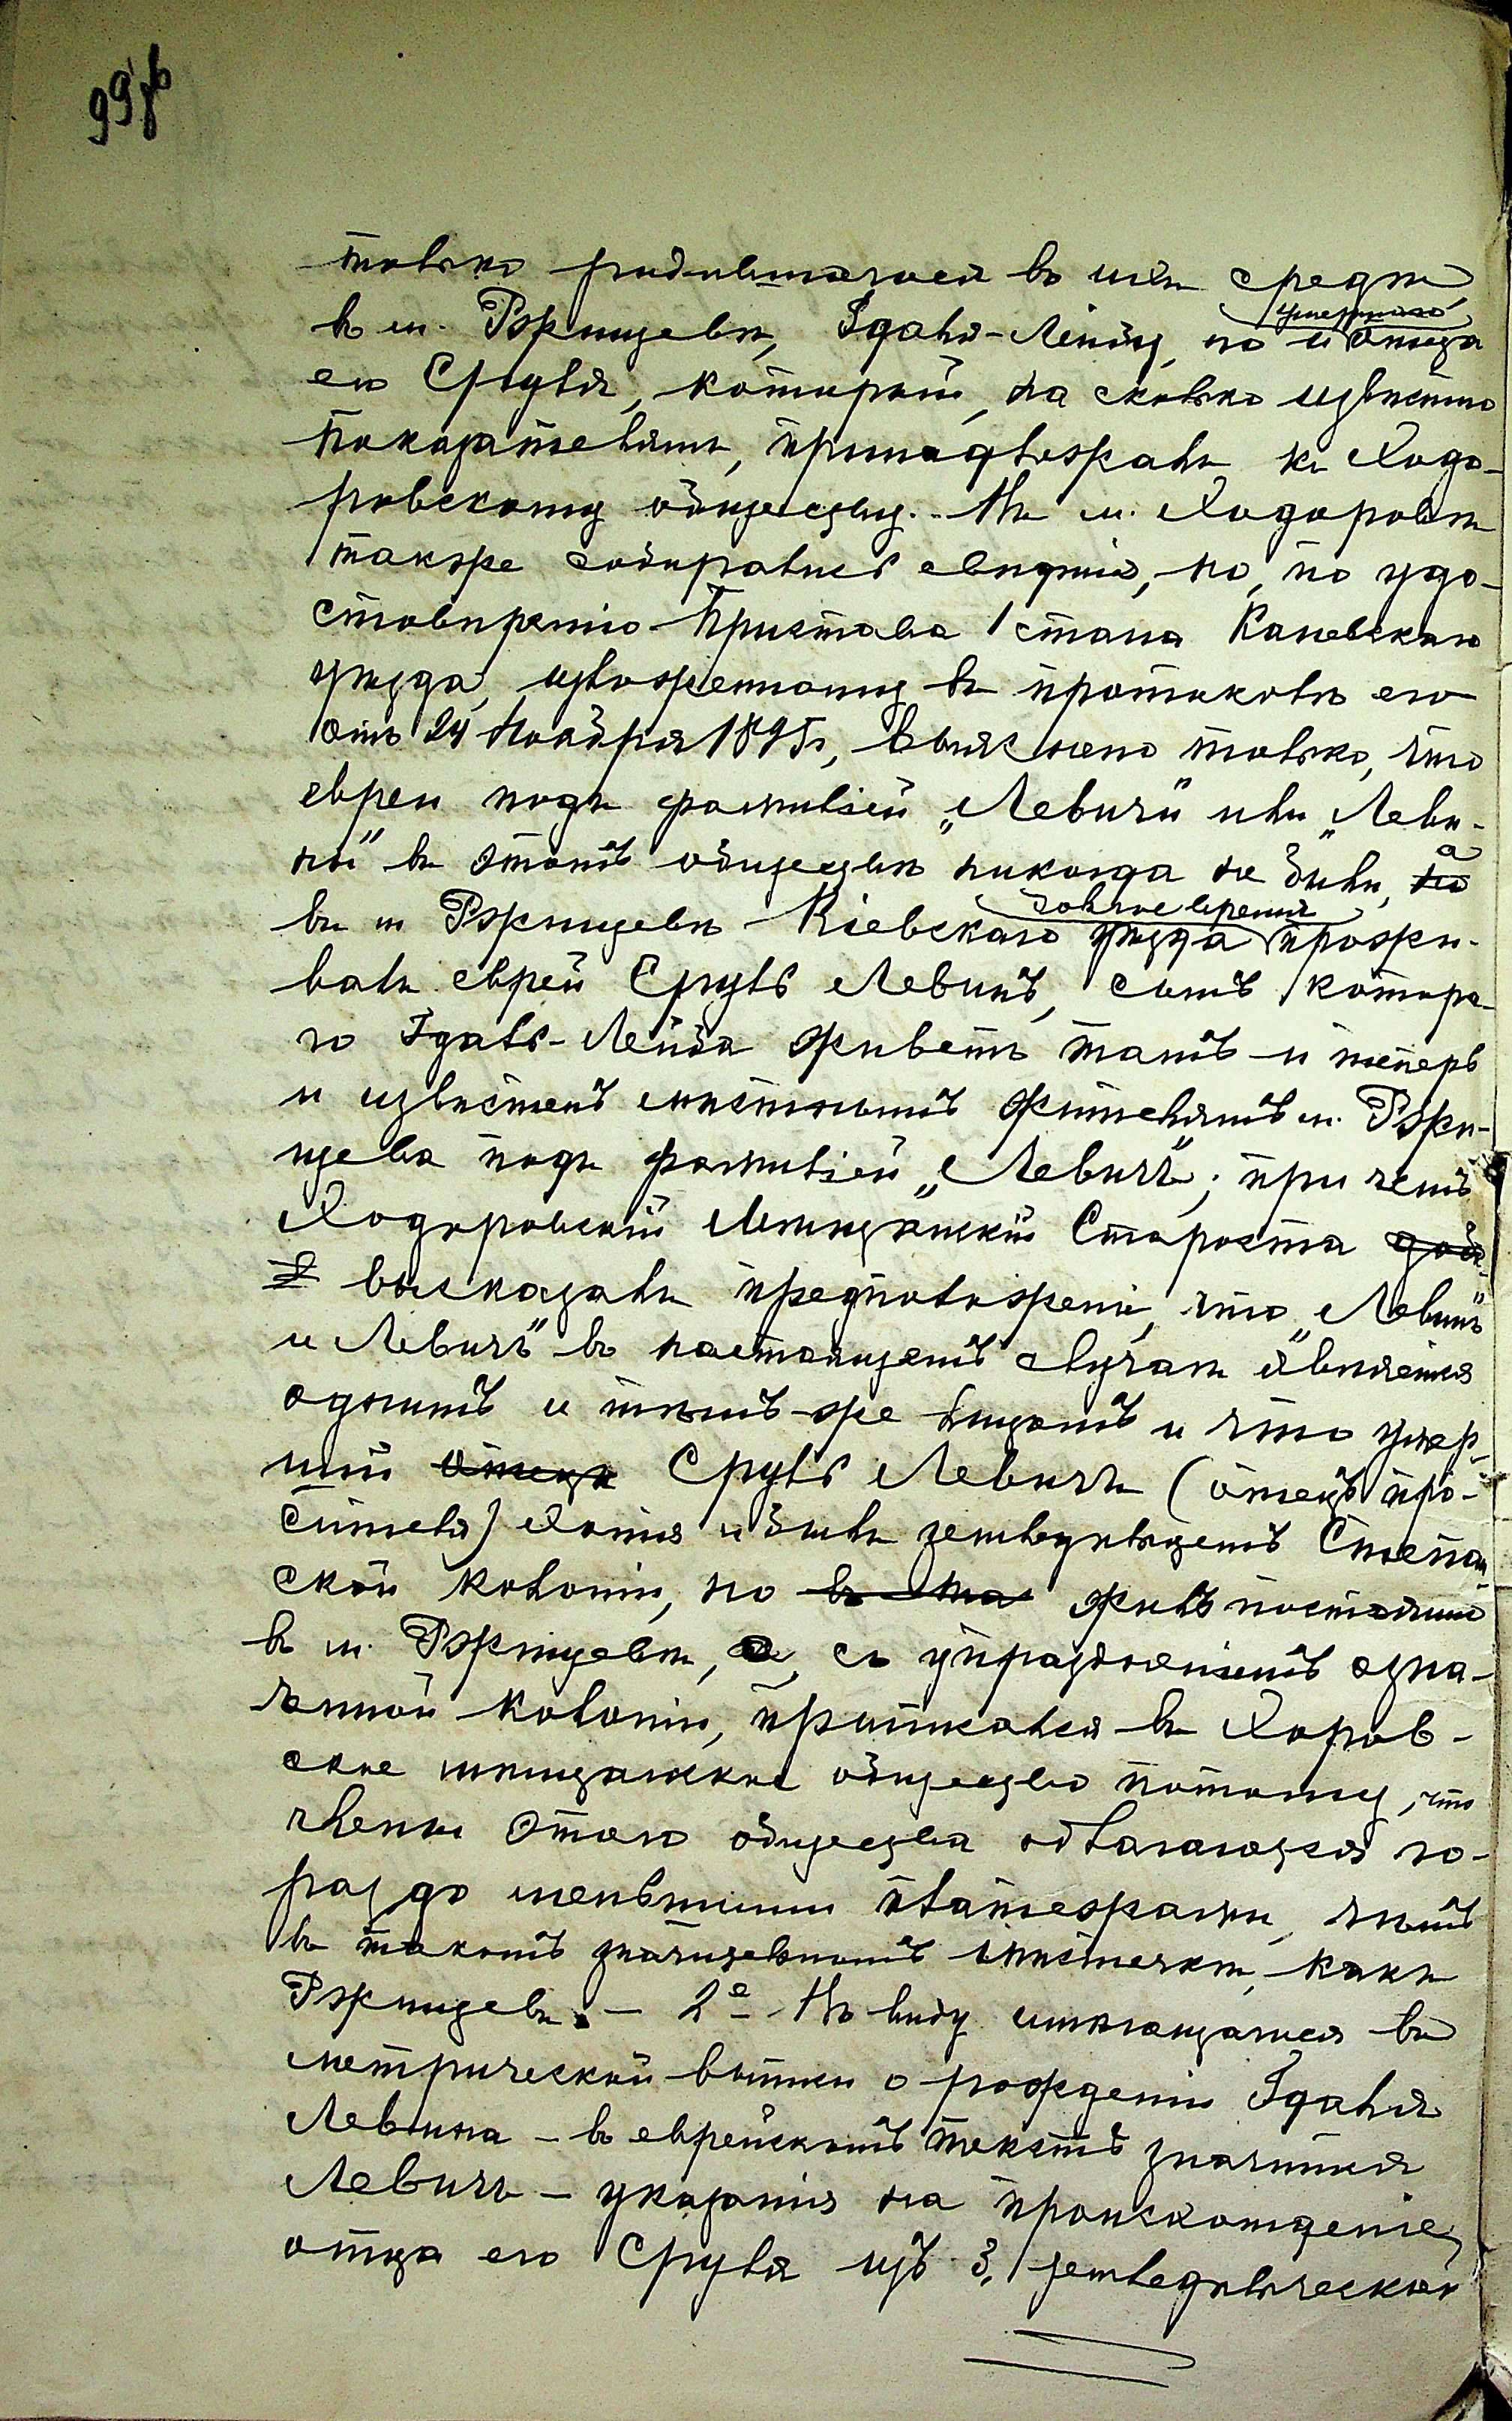 99 об
только родившагося въ ихъ средѣ
умершаго
въ м. Ржищевѣ, Ідаля-Лейбу, но и отца
его Сруля, который, на сколько извѣстно
показателямъ, принадлежалъ къ Ходо-
ровскому обществу. Въ м. Ходоровѣ
также собирались свѣдѣнія, но, по удо-
стовѣренію Пристава 1 стана Каневскаго
уѣзда, изложенному въ протоколѣ его
отъ 24 Ноября 1895 г., выяснено только, что
евреи подъ фамиліей „Левичъ" или „Леви-
нъ" въ этомъ обществѣ никогда не были, но а
долгое время
въ м Ржищевѣ Кіевскаго уѣзда прожи-
валъ еврей Сруль Левинъ, сынъ котора-
го Ідаль-Лейба живетъ тамъ и теперь
и извѣстенъ мѣстнымъ жителямъ м. Ржи-
щева подъ фамиліей „Левичъ"; при чемъ
Ходоровскій Мѣщанскій Староста
высказалъ предположеніе, что „Левинъ"
и Левичъ" въ настоящемъ случаѣ является
однимъ и тѣмъ-же лицомъ и что умер-
шій отецъ Сруль Левичъ (отецъ про-
сителя) хотя и былъ земледѣльцемъ Степан
ской колоніи, но жилъ постоянно
въ м. Ржищевѣ, а, съ упраздненіемъ озна-
ченной колоніи, приписался въ Хоров-
ское мѣщанское общество потому, что
члены этого общества облагаются го-
раздо меньшими платежами, чѣмъ
въ такомъ значительномъ мѣстечкѣ, какъ
Ржищевъ. – 2е Въ виду имѣющагося въ
метрической выписи о рожденіи Ідаля
Левина – въ еврейскомъ текстѣ значится
Левичъ – указанія на происхожденіе
отца его Сруля изъ земледѣльческой